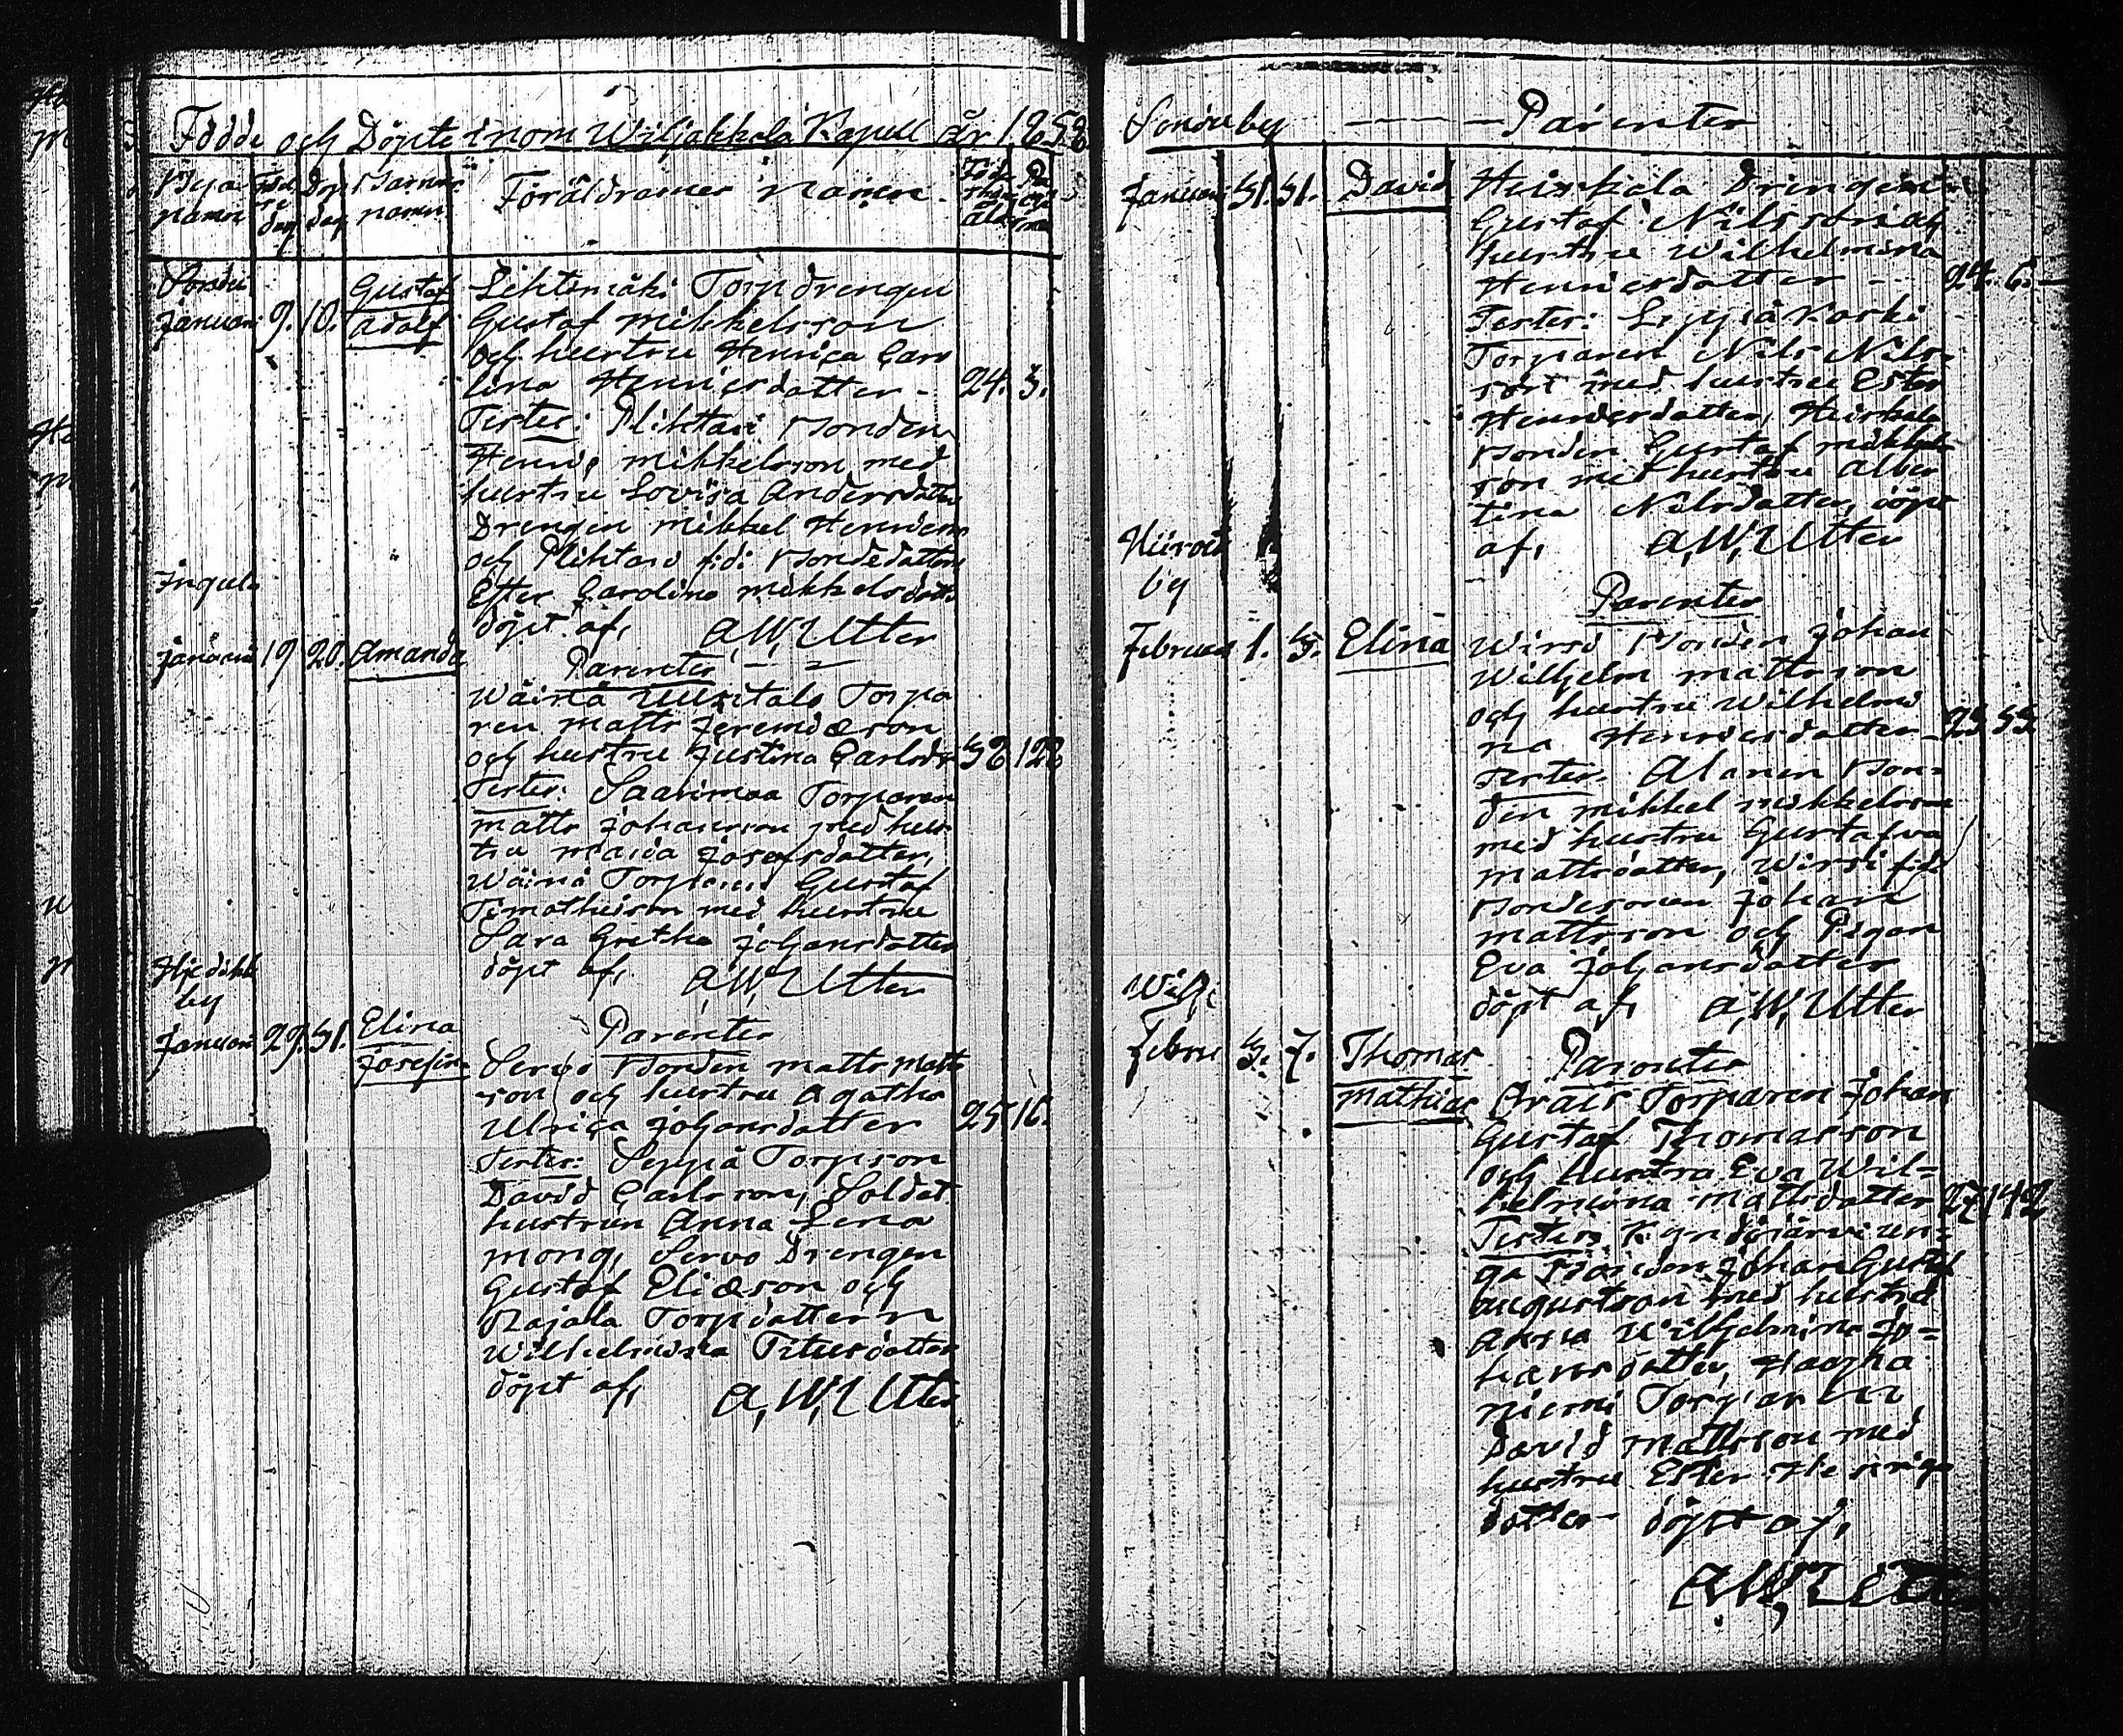 Födde och Döpte inom Wiljakkala Kapell år 1858
Byar namn Födelse dag Döp dag Barnets namn Föräldrarnes namn
Januari 9. 10. Gustaf Adolf
Lihtemäki Torpdrengen
Gustaf Mikkelsson
och hustru Henrica Caro
lina Henricsdatter - 24. 3.
Testes: Plihtari Bonden
Henric Mikkelsson med
hustru Lovisa Andersdatter
Drengen Mikkel Henricsson
och Plihtari fid: Bondedattern
Ester Carolina Mikkelsdatter
döpt af, A, W, Utter
Ingula
Januari 19 20. Amanda
Parenter
Wäinä Uusitalo Torpa
ren Matts Jeremiæson
och hustru Justina Carlsdr 38 128
Testes: Saarimaa Torparen
Matts Johansson med hus
tru Maria Josefsdatter,
Wäinä Torparen Gustaf
Timotheison med hustru
Sara Gretha Johansdatter
döpt af, A, W, Utter
by
Januari 29. 31. Elina Josefina
Parenter
Servo Bonden Matts Matts
son och hustru Agatha
Ulrica Johansdatter 25 16.
Testes: Seppä Torpson
David Carlsson, Soldat
hustrun Anna Lena
Mong, Servo Drengen
Gustaf Eliæson och
Rajala Torpdattern
Wilhelmina Titusdatter
döpt af, A, W, Utter
by - - - Parenter
Januari 31. 31. David
Heiskala Drengen
Gustaf Nilsson och
hustru Wilhelmina
Henricsdatter - 24. 6.
Testes: Leppäkoski
Torparen Nils Nils-
son med hustru Ester
Henricsdatter, Heiskala
Bonden Gustaf Mikkels
son med hustru Alber
tina Nilsdatter, döpt
af, A, W, Utter
by
Parenter
Februari 1. 3. Elina
Wirsi Bonden Johan
Wilhelm Mattsson
och hustru Wilhelmi
na Henricsdatter - 23 53.
Testes: Alanen Bon-
den Mikkel Mikkelsson
med hustru Gustafva
Mattsdatter, Wirsi fid:
Bondesonen Johan
Mattsson och Pigan
Eva Johansdatter
döpt af, A, W, Utter
Februari 3. 7. Thomas Mathias
Parenter
Arais Torparen Johan
Gustaf Thomasson
och hustru Eva Wil-
helmina Mattsdatter 27 142
Testes: Kyndjärvi un-
ga Bonden Johan Gustaf
Augustson med hustru
Anna Wilhelmina Jo-
hansdatter, Haapa
niemi Torparen
David Mattsson med
hustru Ester Henrics
datter - döpt af,
A, W, Utter